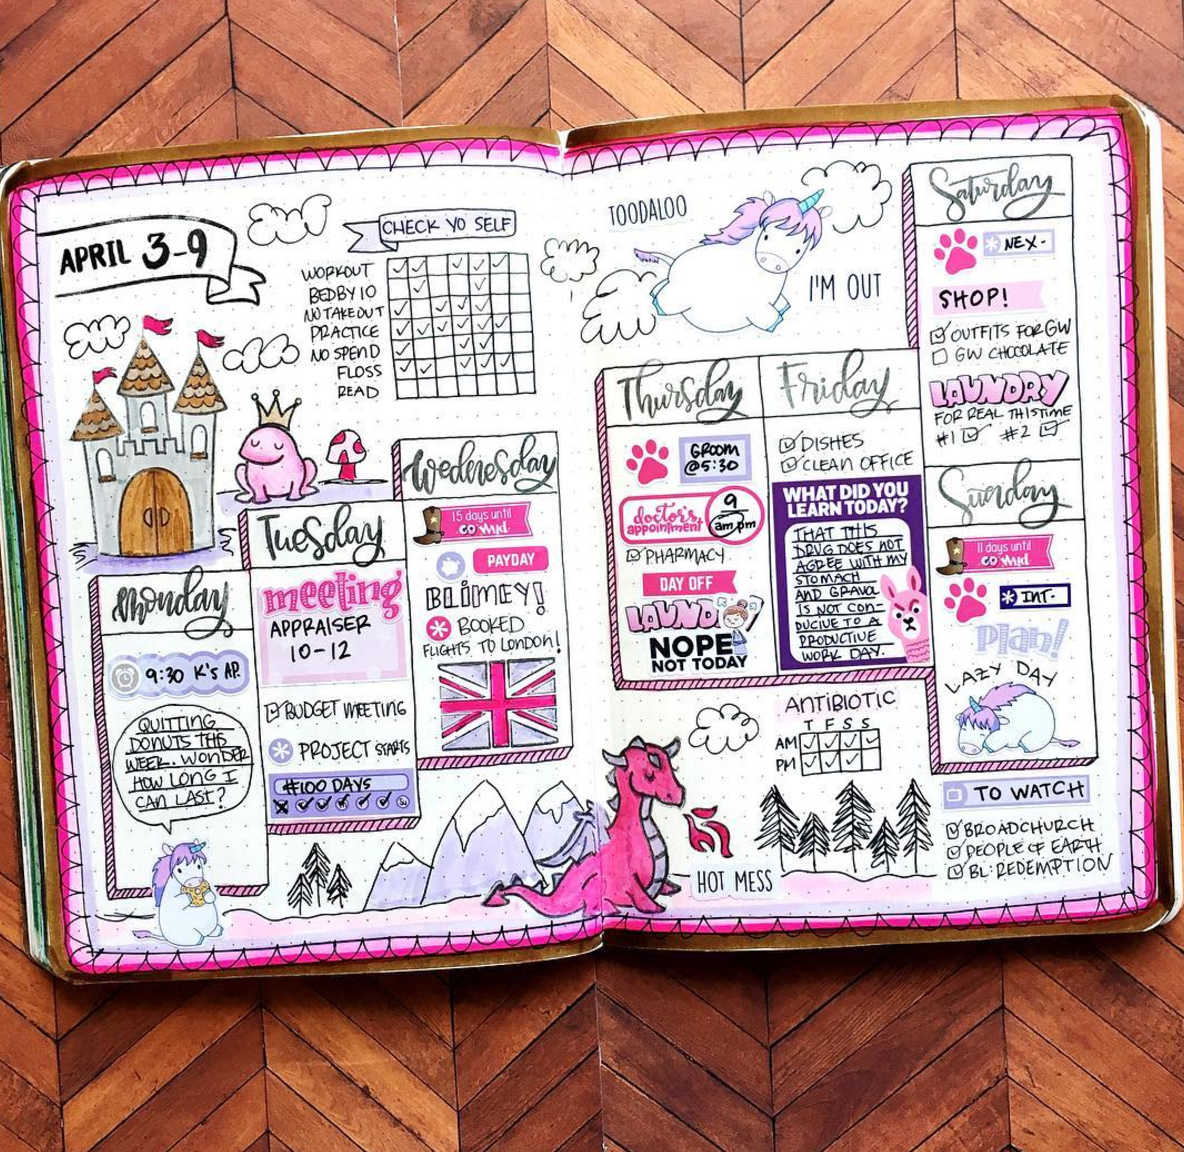 APRIL 3-9
CHECK YO SELF
WORKOUT
BED BY 10
NO TAKE OUT
PRACTICE
NO SPEND
FLOSS
READ
Monday
9:30 K's AP.
QUITTING
DONUTS THIS
WEEK. WONDER
HOW LONG I
CAN LAST?
Tuesday
meeting
APPRAISER
10-12
BUDGET MEETING
PROJECT STARTS
#100 DAYS
Wednesday
15 days until
PAYDAY
BLIMEY!
BOOKED
FLIGHTS TO LONDON!
TOODALOO
I'M OUT
Thursday
GROOM
@5:30
doctor's
appointment
9
am pm
PHARMACY
DAY OFF
LAUND
NOPE
NOT TODAY
Friday
DISHES
CLEAN OFFICE
WHAT DID YOU
LEARN TODAY?
THAT THIS
DRUG DOES NOT
AGREE WITH MY
STOMACH
AND GRAVOL
IS NOT CON-
DUCIVE TO A
PRODUCTIVE
WORK DAY.
Saturday
NEX-
SHOP!
OUTFITS FOR GW
GW CHOCOLATE
LAUNDRY
FOR REAL THIS TIME
#1 #2
Sunday
11 days until
INT-
Plan!
LAZY DAY
ANTIBIOTIC
T F S S
AM
PM
HOT MESS
TO WATCH
BROADCHURCH
PEOPLE OF EARTH
BL: REDEMPTION